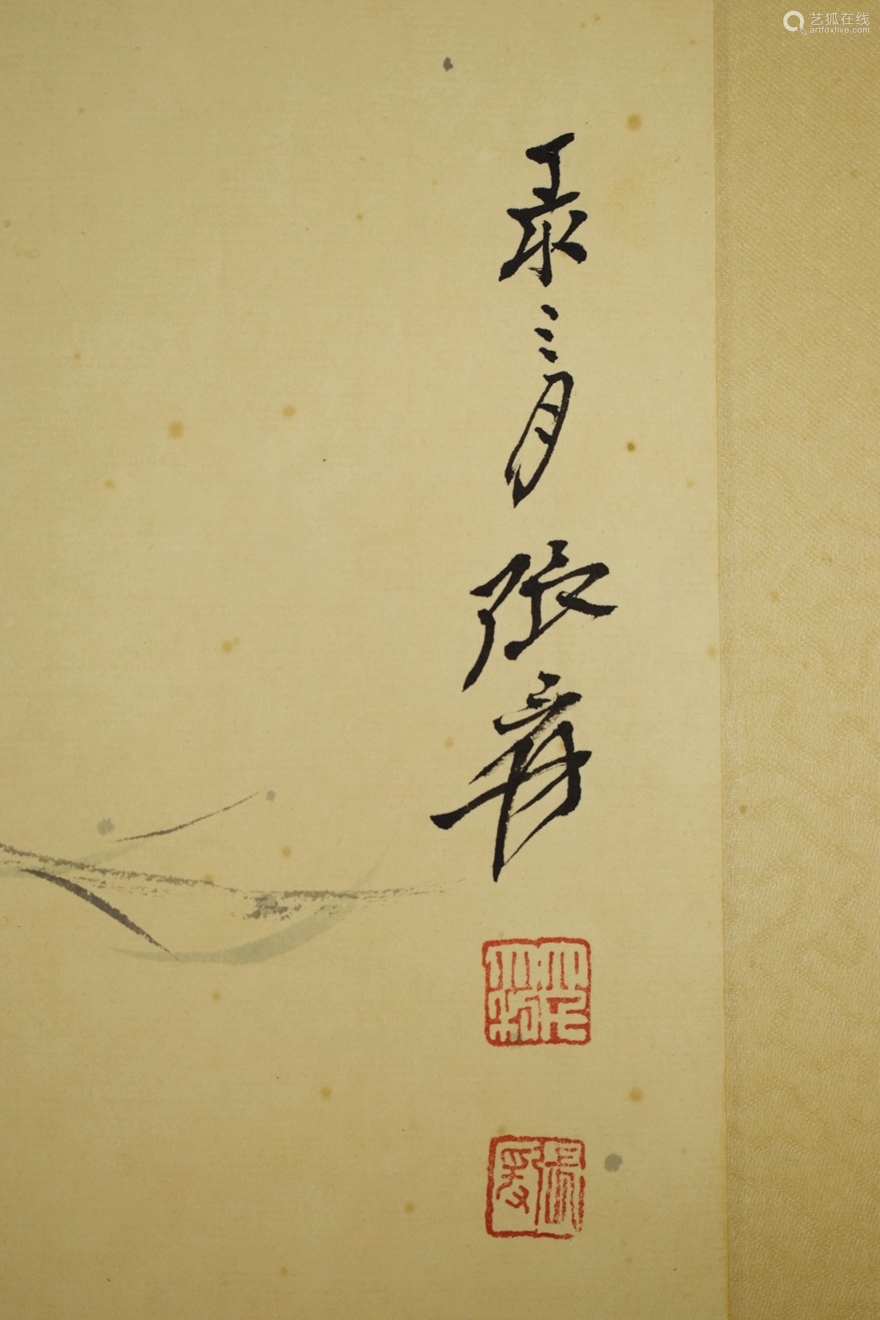 艺狐在线
artfoxlive.com
三月 張爰
張爰